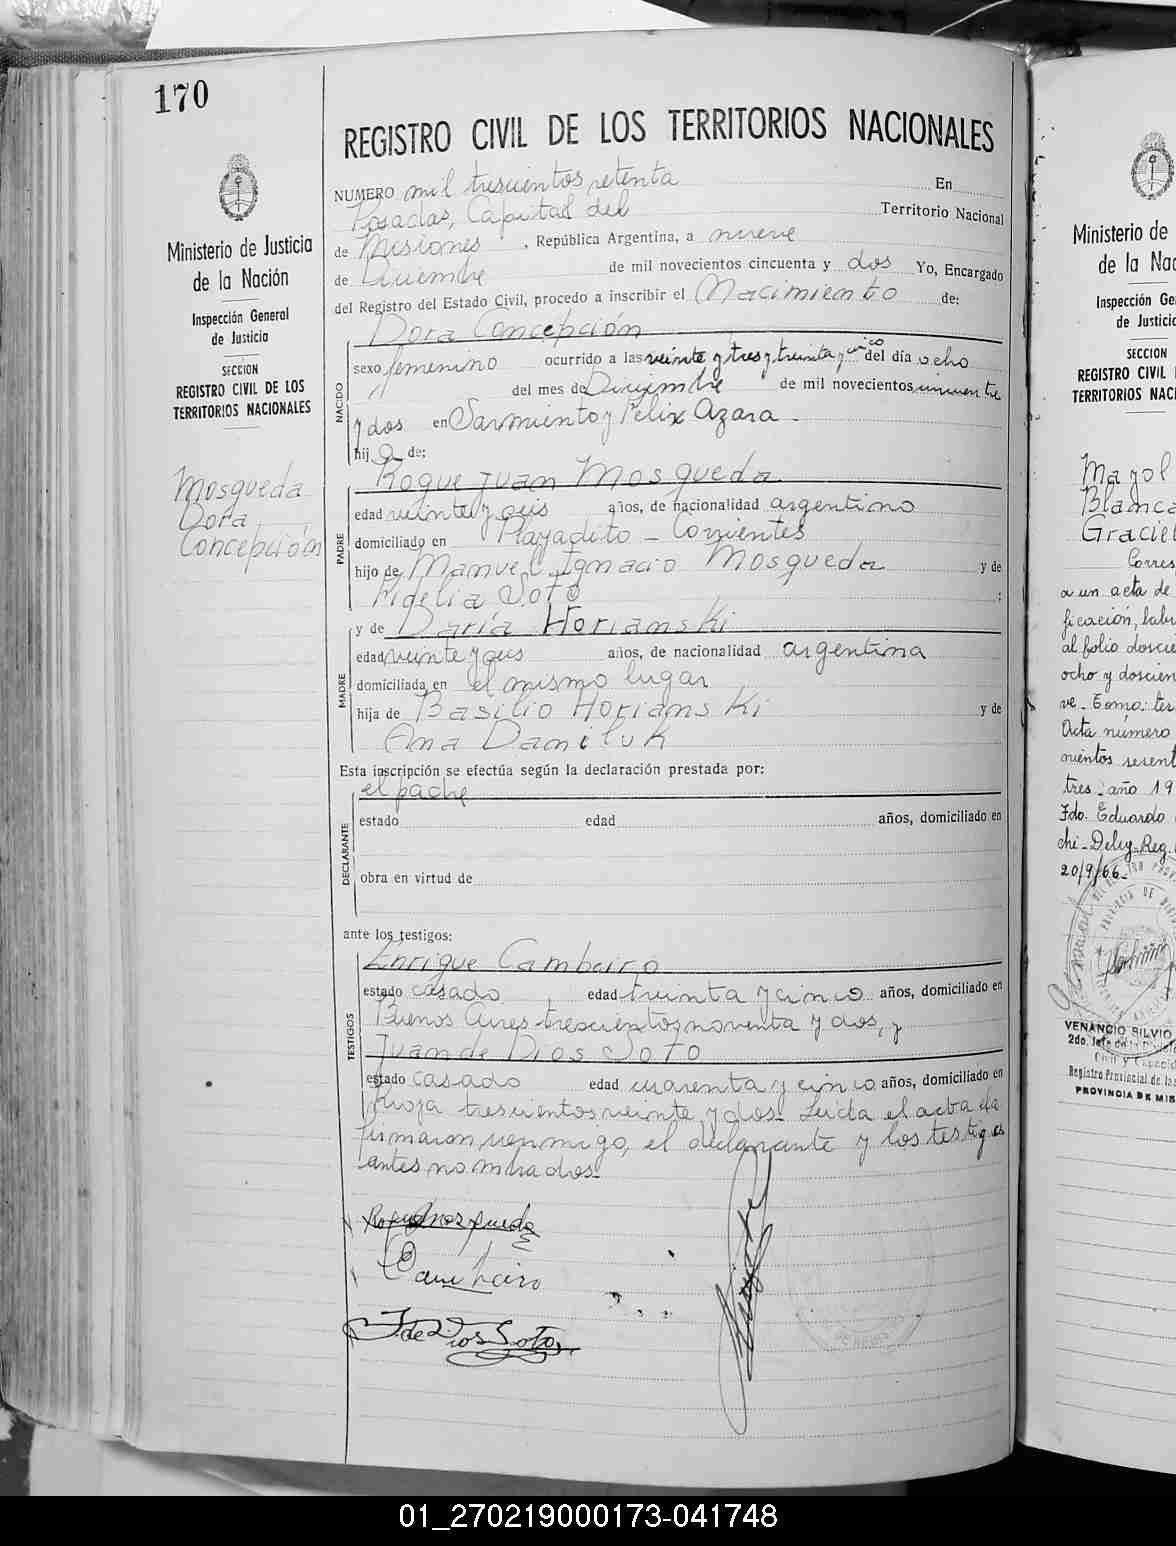 170
REGISTRO CIVIL DE LOS TERRITORIOS NACIONALES
Ministerio de Justicia
de la Nación
Inspección General
de Justicia
SECCIÓN
REGISTRO CIVIL DE LOS
TERRITORIOS NACIONALES
Mosqueda
Dora
Concepción
NUMERO mil trescientos setenta En
Posadas, Capital del Territorio Nacional
de Misiones, República Argentina, a nueve
de Diciembre de mil novecientos cincuenta y dos Yo, Encargado
del Registro del Estado Civil, procedo a inscribir el Nacimiento de:
Dora Concepción
NACIDO
sexo femenino ocurrido a las veinte y tres y treinta y cinco del día ocho
del mes de Diciembre de mil novecientos cincuenta
y dos en Sarmiento y Félix Azara.
hija de:
Roque Juan Mosqueda
PADRE
edad veinte y seis años, de nacionalidad argentino
domiciliado en Playadito - Corrientes
hijo de Manuel Ignacio Mosqueda y de
Fidelia Soto ;
y de Daría Horianski
MADRE
edad veinte y seis años, de nacionalidad argentina
domiciliada en el mismo lugar
hija de Basilio Horianski y de
Ana Daniluk
Esta inscripción se efectúa según la declaración prestada por:
el padre
DECLARANTE
estado edad años, domiciliado en
obra en virtud de
ante los testigos:
Enrique Cambeiro
TESTIGOS
estado casado, edad treinta y cinco años, domiciliado en
Buenos Aires trescientos noventa y dos, y
Juan de Dios Soto
estado casado edad cuarenta y cinco años, domiciliado en
Rioja trescientos veinte y dos. Leída el acta la
firmaron conmigo, el declarante y los testigos
antes nombrados.
Roque Mosqueda
Cambeiro
J. de Dios Soto
Ministerio de
de la Nac
Inspección Ge
de Justicia
SECCION
REGISTRO CIVIL
TERRITORIOS NAC
Blanca
Graciel
Corres
a un acta de
al folio doscie
ocho y doscien
Acta número
tres: año 19
Fdo. Eduardo
20/9/66-
VENANCIO SILVIO
Registro Provincial de la
PROVINCIA DE MIS
01_270219000173-041748